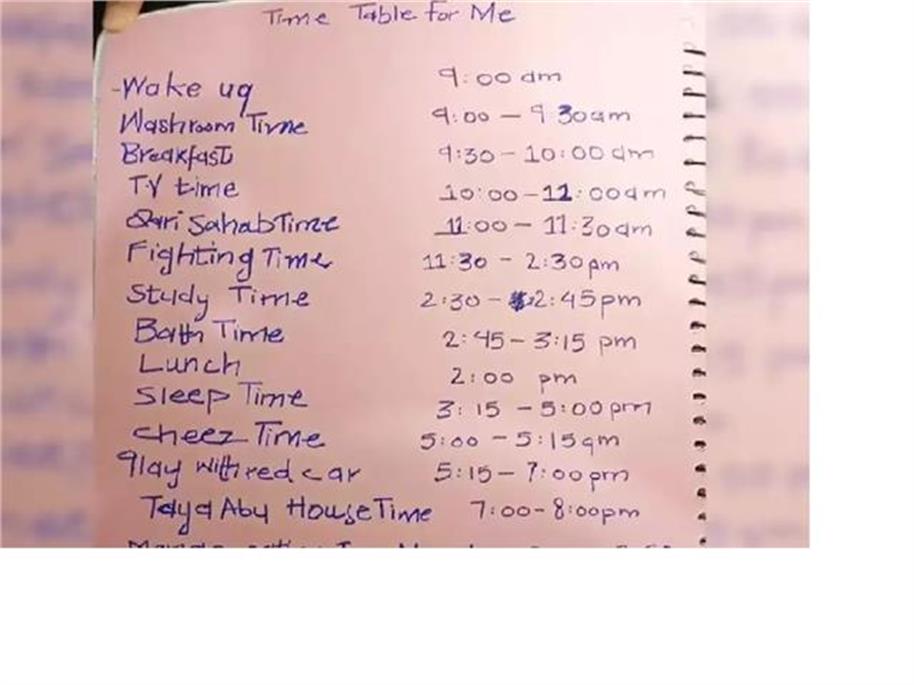 Time Table for Me
-Wake up 9:00 am
Washroom Time 9:00 - 9 30am
Breakfast 9:30 - 10:00 am
TV time 10:00 - 11:00am
Qari Sahab Time 11:00 - 11:30am
Fighting Time 11:30 - 2:30pm
Study Time 2:30 - 2:45pm
Bath Time 2:45 - 3:15 pm
Lunch 2:00 pm
Sleep Time 3:15 - 5:00pm
Cheez Time 5:00 - 5:15am
Play with red car 5:15 - 7:00pm
Taya Abu House Time 7:00 - 8:00pm